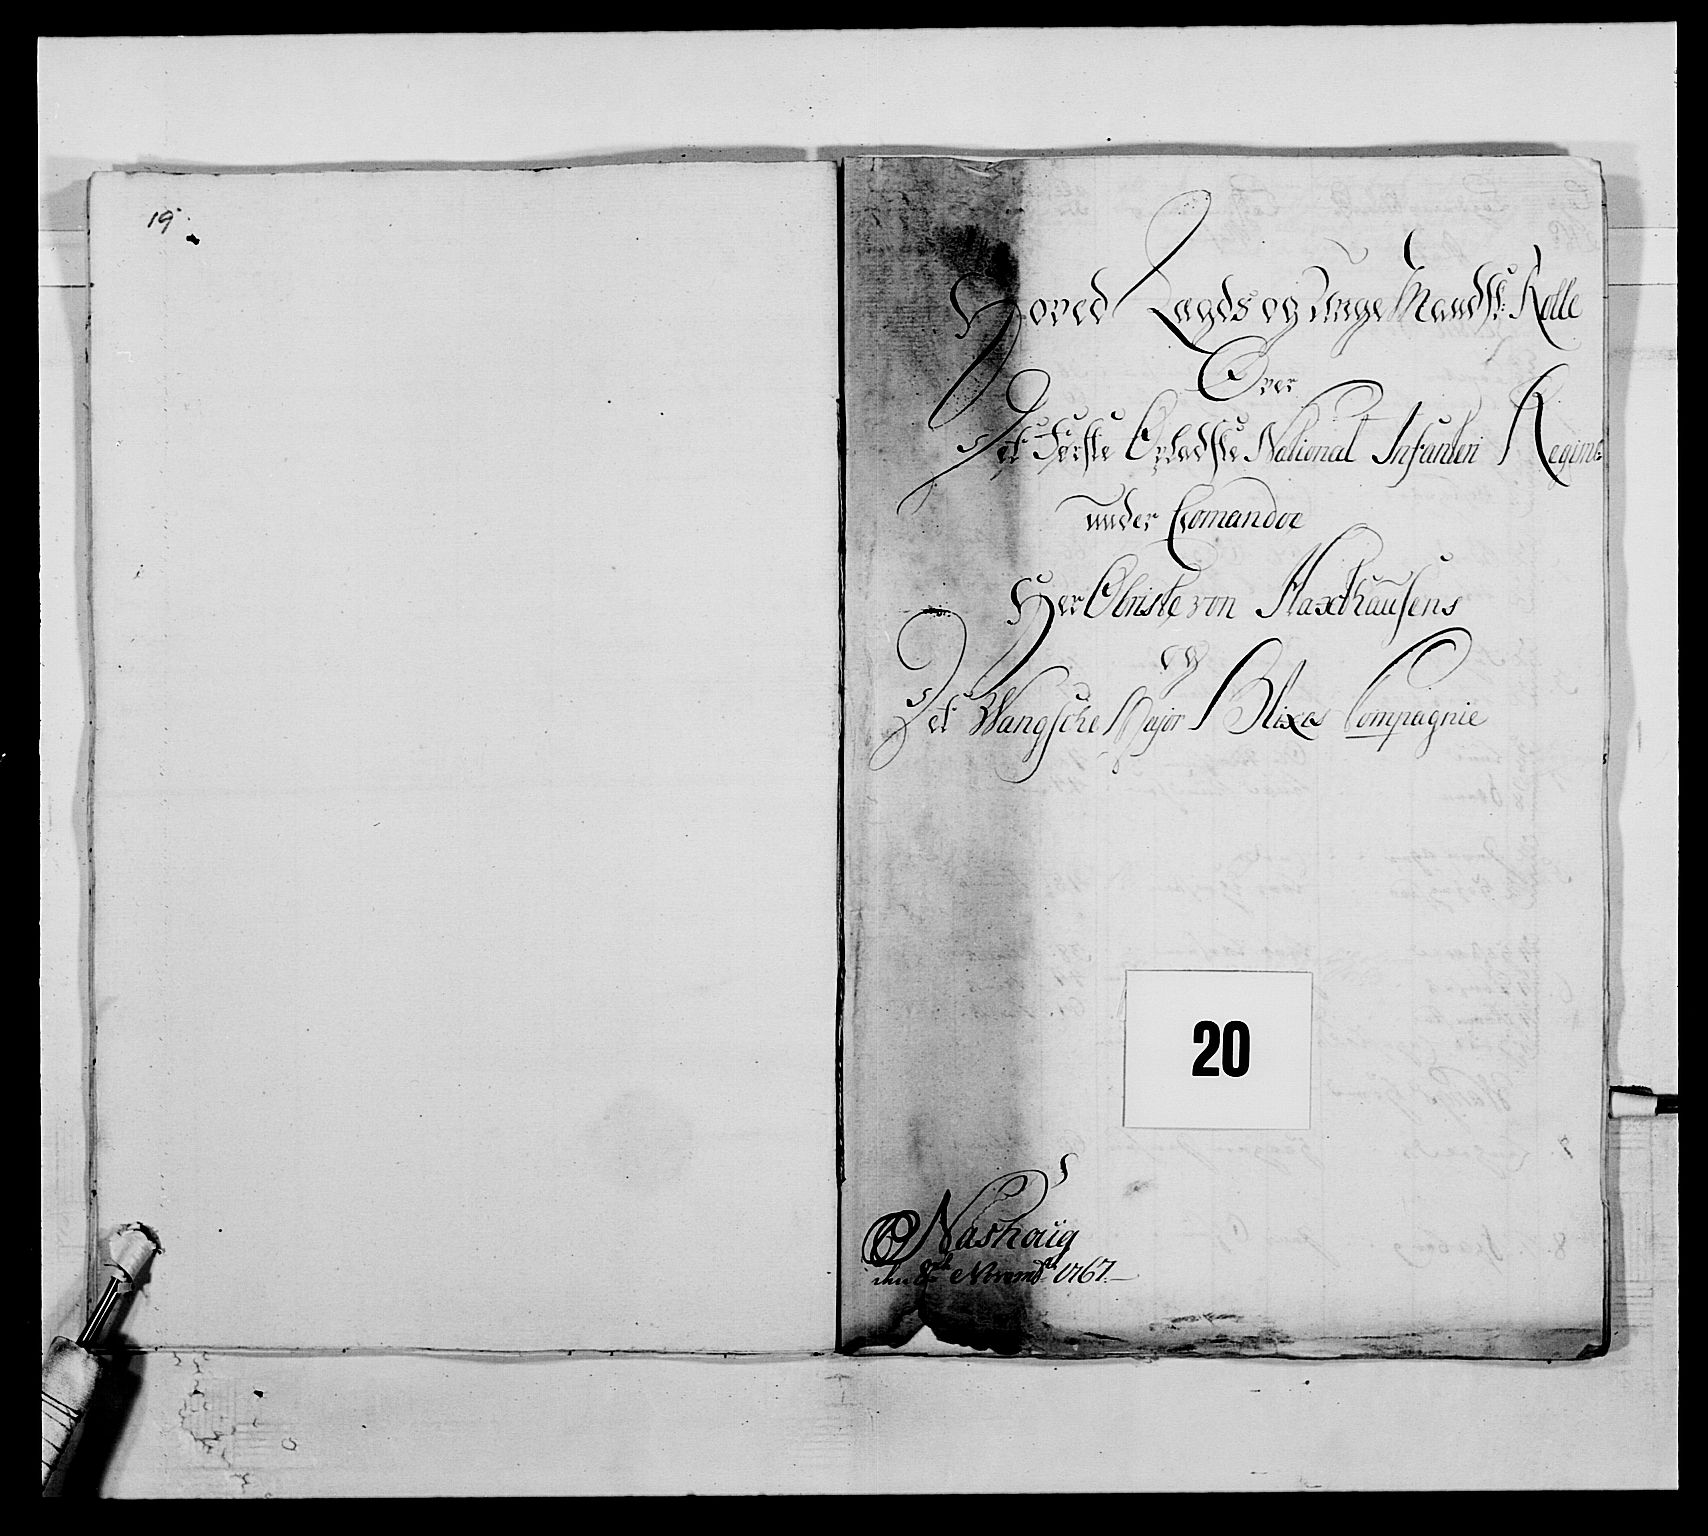 19.
Hoved Lagds og Unge Mandsk: Rolle
Over
Det Første Oplandske National Infanteri Regim:
under Comando
Her Obriste von Haxthausens
og
Det Wangsche Major Blixes Compagnie
20
Nashoug
den 8de Novembr 1767.